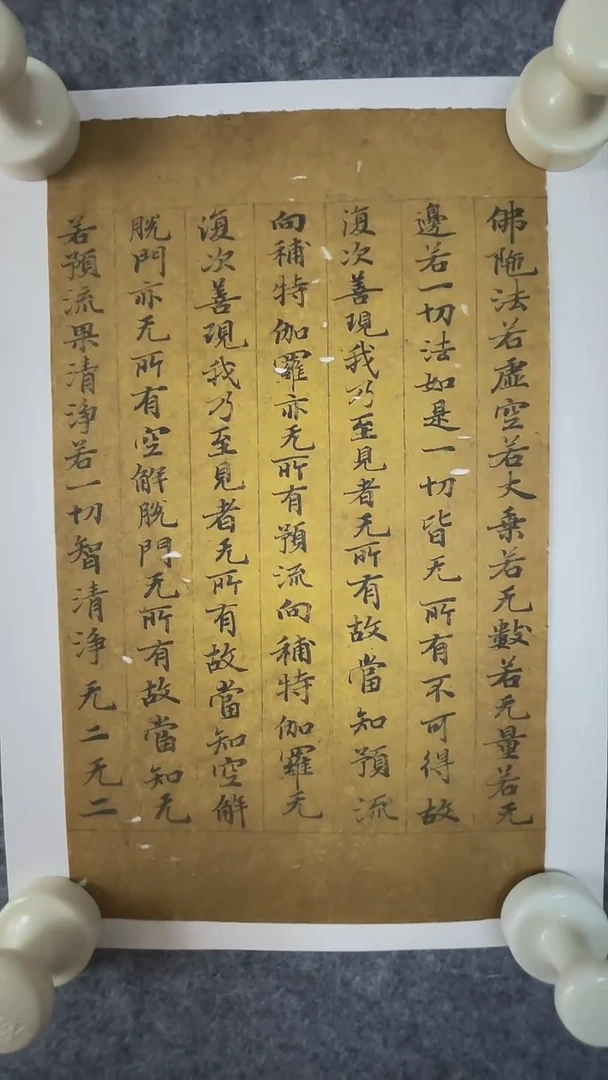 佛陁法若虛空若大乗若无數若无量若无
邊若一切法如是一切皆无所有不可得故
復次善現我乃至見者无所有故當知預流
向補特伽羅亦无所有預流向補特伽羅无
復次善現我乃至見者无所有故當知空解
脫門亦无所有空解脫門无所有故當知无
若預流果清淨若一切智清淨无二无二